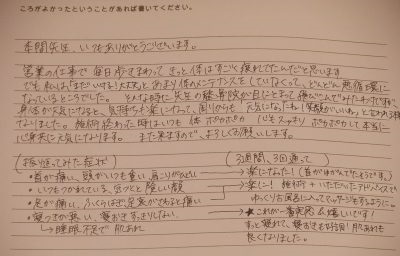 ころがよかったということがあれば書いてください。
本間先生、いつもありがとうございます。
営業の仕事で毎日歩きまわって きっと体はすごく疲れてたんだと思います
でも私は「まだいける！大丈夫」とあまり体のメンテナンスをしていなくて、どんどん悪循環に
なっているところでした。そんな時に先生の整骨院が目にとまって
身体が元気になると、気持ちも楽になって、周りからも「元気になったね！笑顔がいいね」と言われる様に
なりました。施術終わった時はいつも体ポカポカ 心もスッキリ ポカポカして本当に
心身共に元気になります。また来ますので、よろしくお願いします。
（振り返ってみた症状）
・首が痛い、頭がいつも重い、肩こりがひどい
・いつもつかれている、気づくと険しい顔
・足が痛い、ふくらはぎ、足裏がさわると痛い
・寝つきが悪い、寝おきすっきりしない
→睡眠不足で肌あれ
（3週間、3回通って）
→楽になった！（首がゆがんでたそうです。）
→楽に！施術＋いただいたアドバイスで
ゆっくりお風呂に入ってマッサージするように。
→★これが一番実感＆嬉しいです！
すっと寝れて、寝おきも好調！肌あれも
良くなりました。